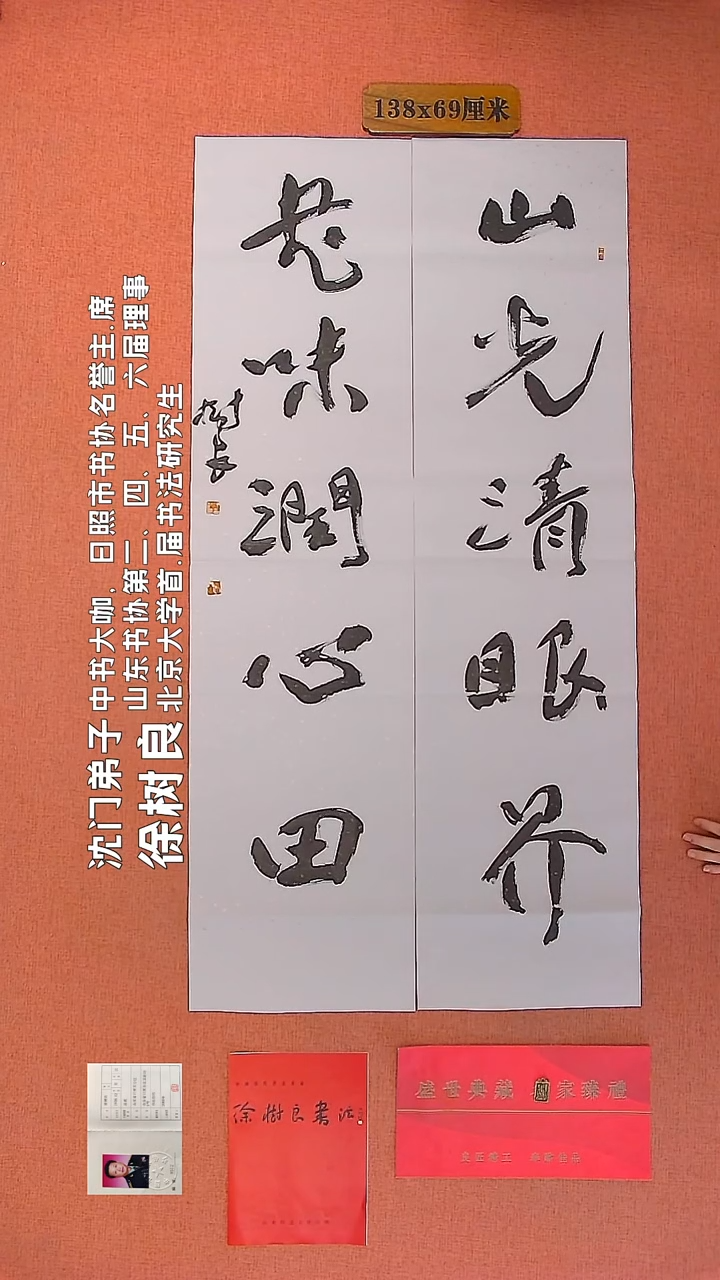 138x69厘米
山光清眼界
花味潤心田
樹良
沈门弟子
徐树良
中书大咖，日照市书协名誉主.席
山东书协第二、四、五、六届理事
北京大学首.届书法研究生
徐樹良書法
盛世典藏 國家臻禮